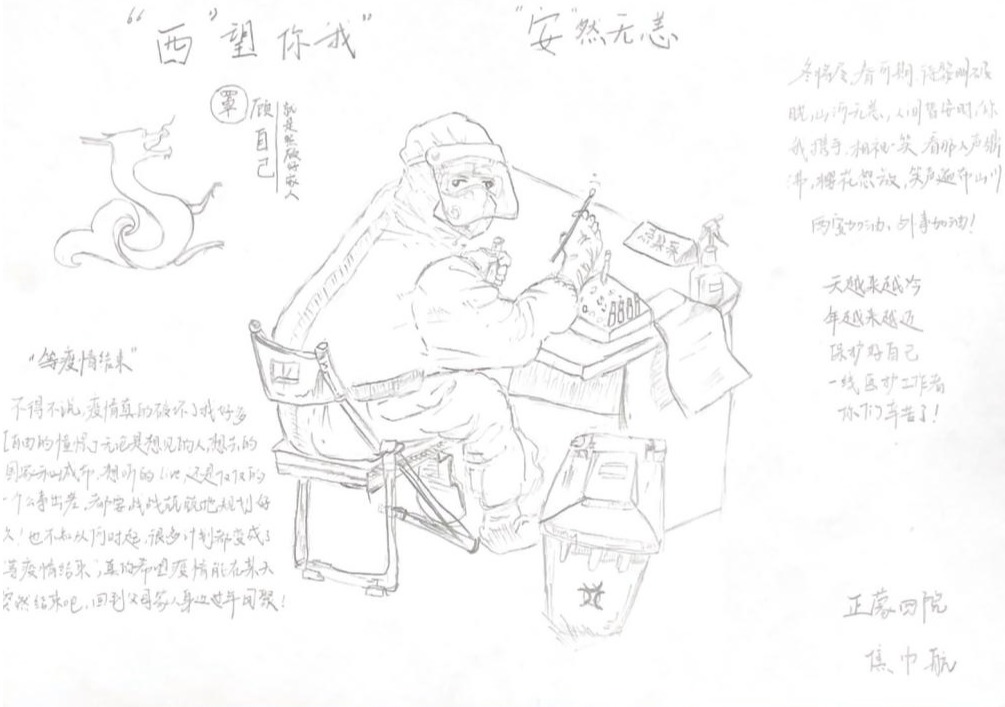 “西”望你我” “安”然无恙
罩
顾
自己
就是照顾好家人
冬将尽,春可期,待黎明破
晓,山河无恙,人间皆安时,你
我携手,相视一笑,看那人声鼎
沸,樱花怒放,笑声遍布山川
西安加油,
天越来越冷
年越来越近
保护好自己
一线医护工作者
你们辛苦了!
“等疫情结束”
不得不说,疫情真的破坏了我好多
自由的憧憬,无论是想见的人,想去的
国家和城市,想听的 还是仅仅的
一个公事出差,都要战战兢兢地规划好
久!也不知从何时起,很多计划都变成了
等疫情结束”,真的希望疫情能在某天
突然结束吧,回到父母家人身边过年团聚!
正蒙四院
焦巾航